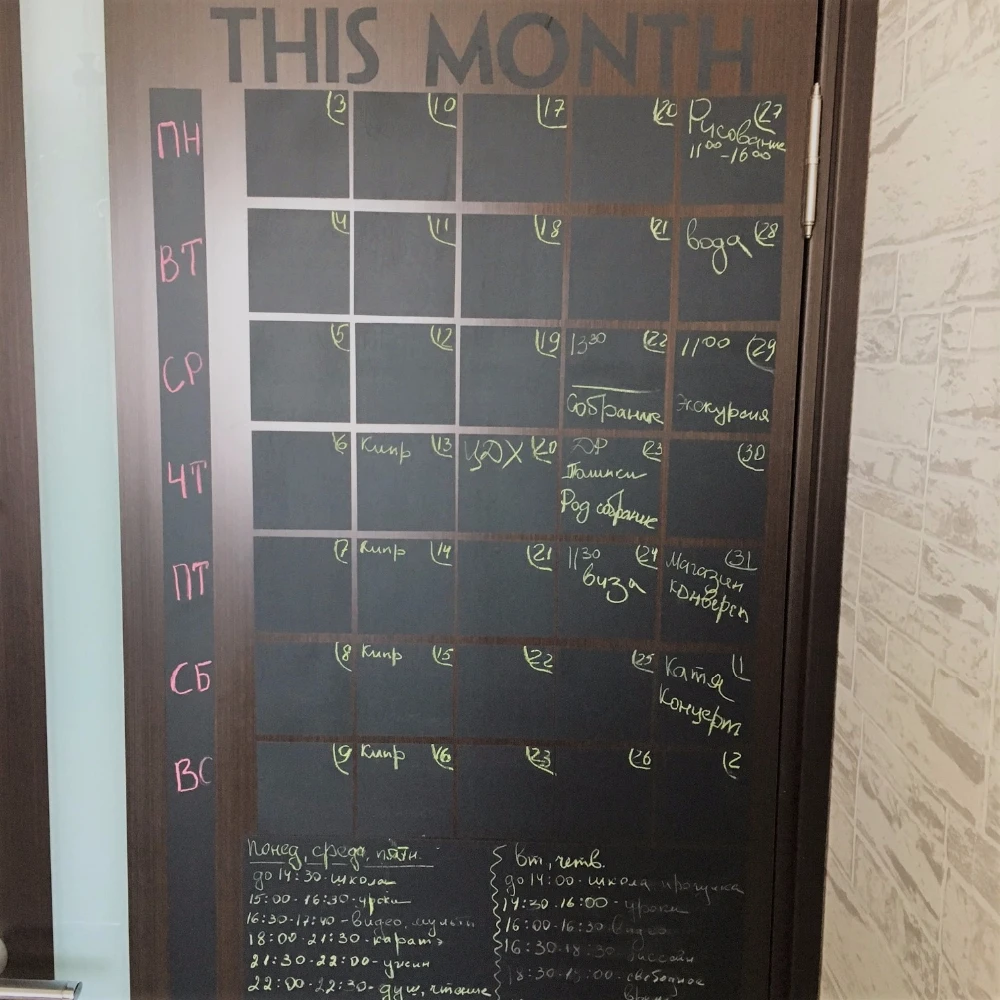 THIS MONTH
ПН 3 10 17 20 27
Рисование
11⁰⁰-16⁰⁰
ВТ 4 11 18 21 вода 28
СР 5 12 19 13³⁰ 22 11⁰⁰ 29
Собрание Экскурсия
ЧТ 6 Кипр 13 ЦДХ 20 ДР 23 30
Род собрание
ПТ 7 Кипр 14 21 11³⁰ 24 31
виза
Магазин
конверсы
СБ 8 Кипр 15 22 25 1
Катя
Концерт
ВС 9 Кипр 16 23 26 2
Понед, среда, пятн.
до 14:30-школа
15:00-16:30-уроки
16:30-17:40-видео, мульты
18:00-21:30-каратэ
21:30-22:00-ужин
22:00-22:30-душ, чтение
Вт, четв.
до 14:00-школа прогулка
14:30-16:00-уроки
16:00-16:30
16:30-18:30-бассейн
18:30-19:00-свободное